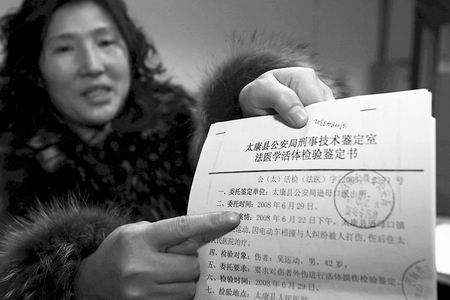 太康县公安局刑事技术鉴定室
法医学活体检验鉴定书
公（太）活检（法医）字 号
一、委托鉴定单位：太康县公安局逊母口派出所。
二、委托时间：2008年6月29日。
案情：2008年6月22日下午， 母口镇
运动，因电动车相撞与人纠纷被人打伤，伤后住太
民医院治疗。
四、检验对象：伤者：吴运动，男，42岁。
五、委托要求：要求对伤者外伤进行活体损伤检验鉴定。
2008年6月29日。
七、检验地点：太康县人民医院